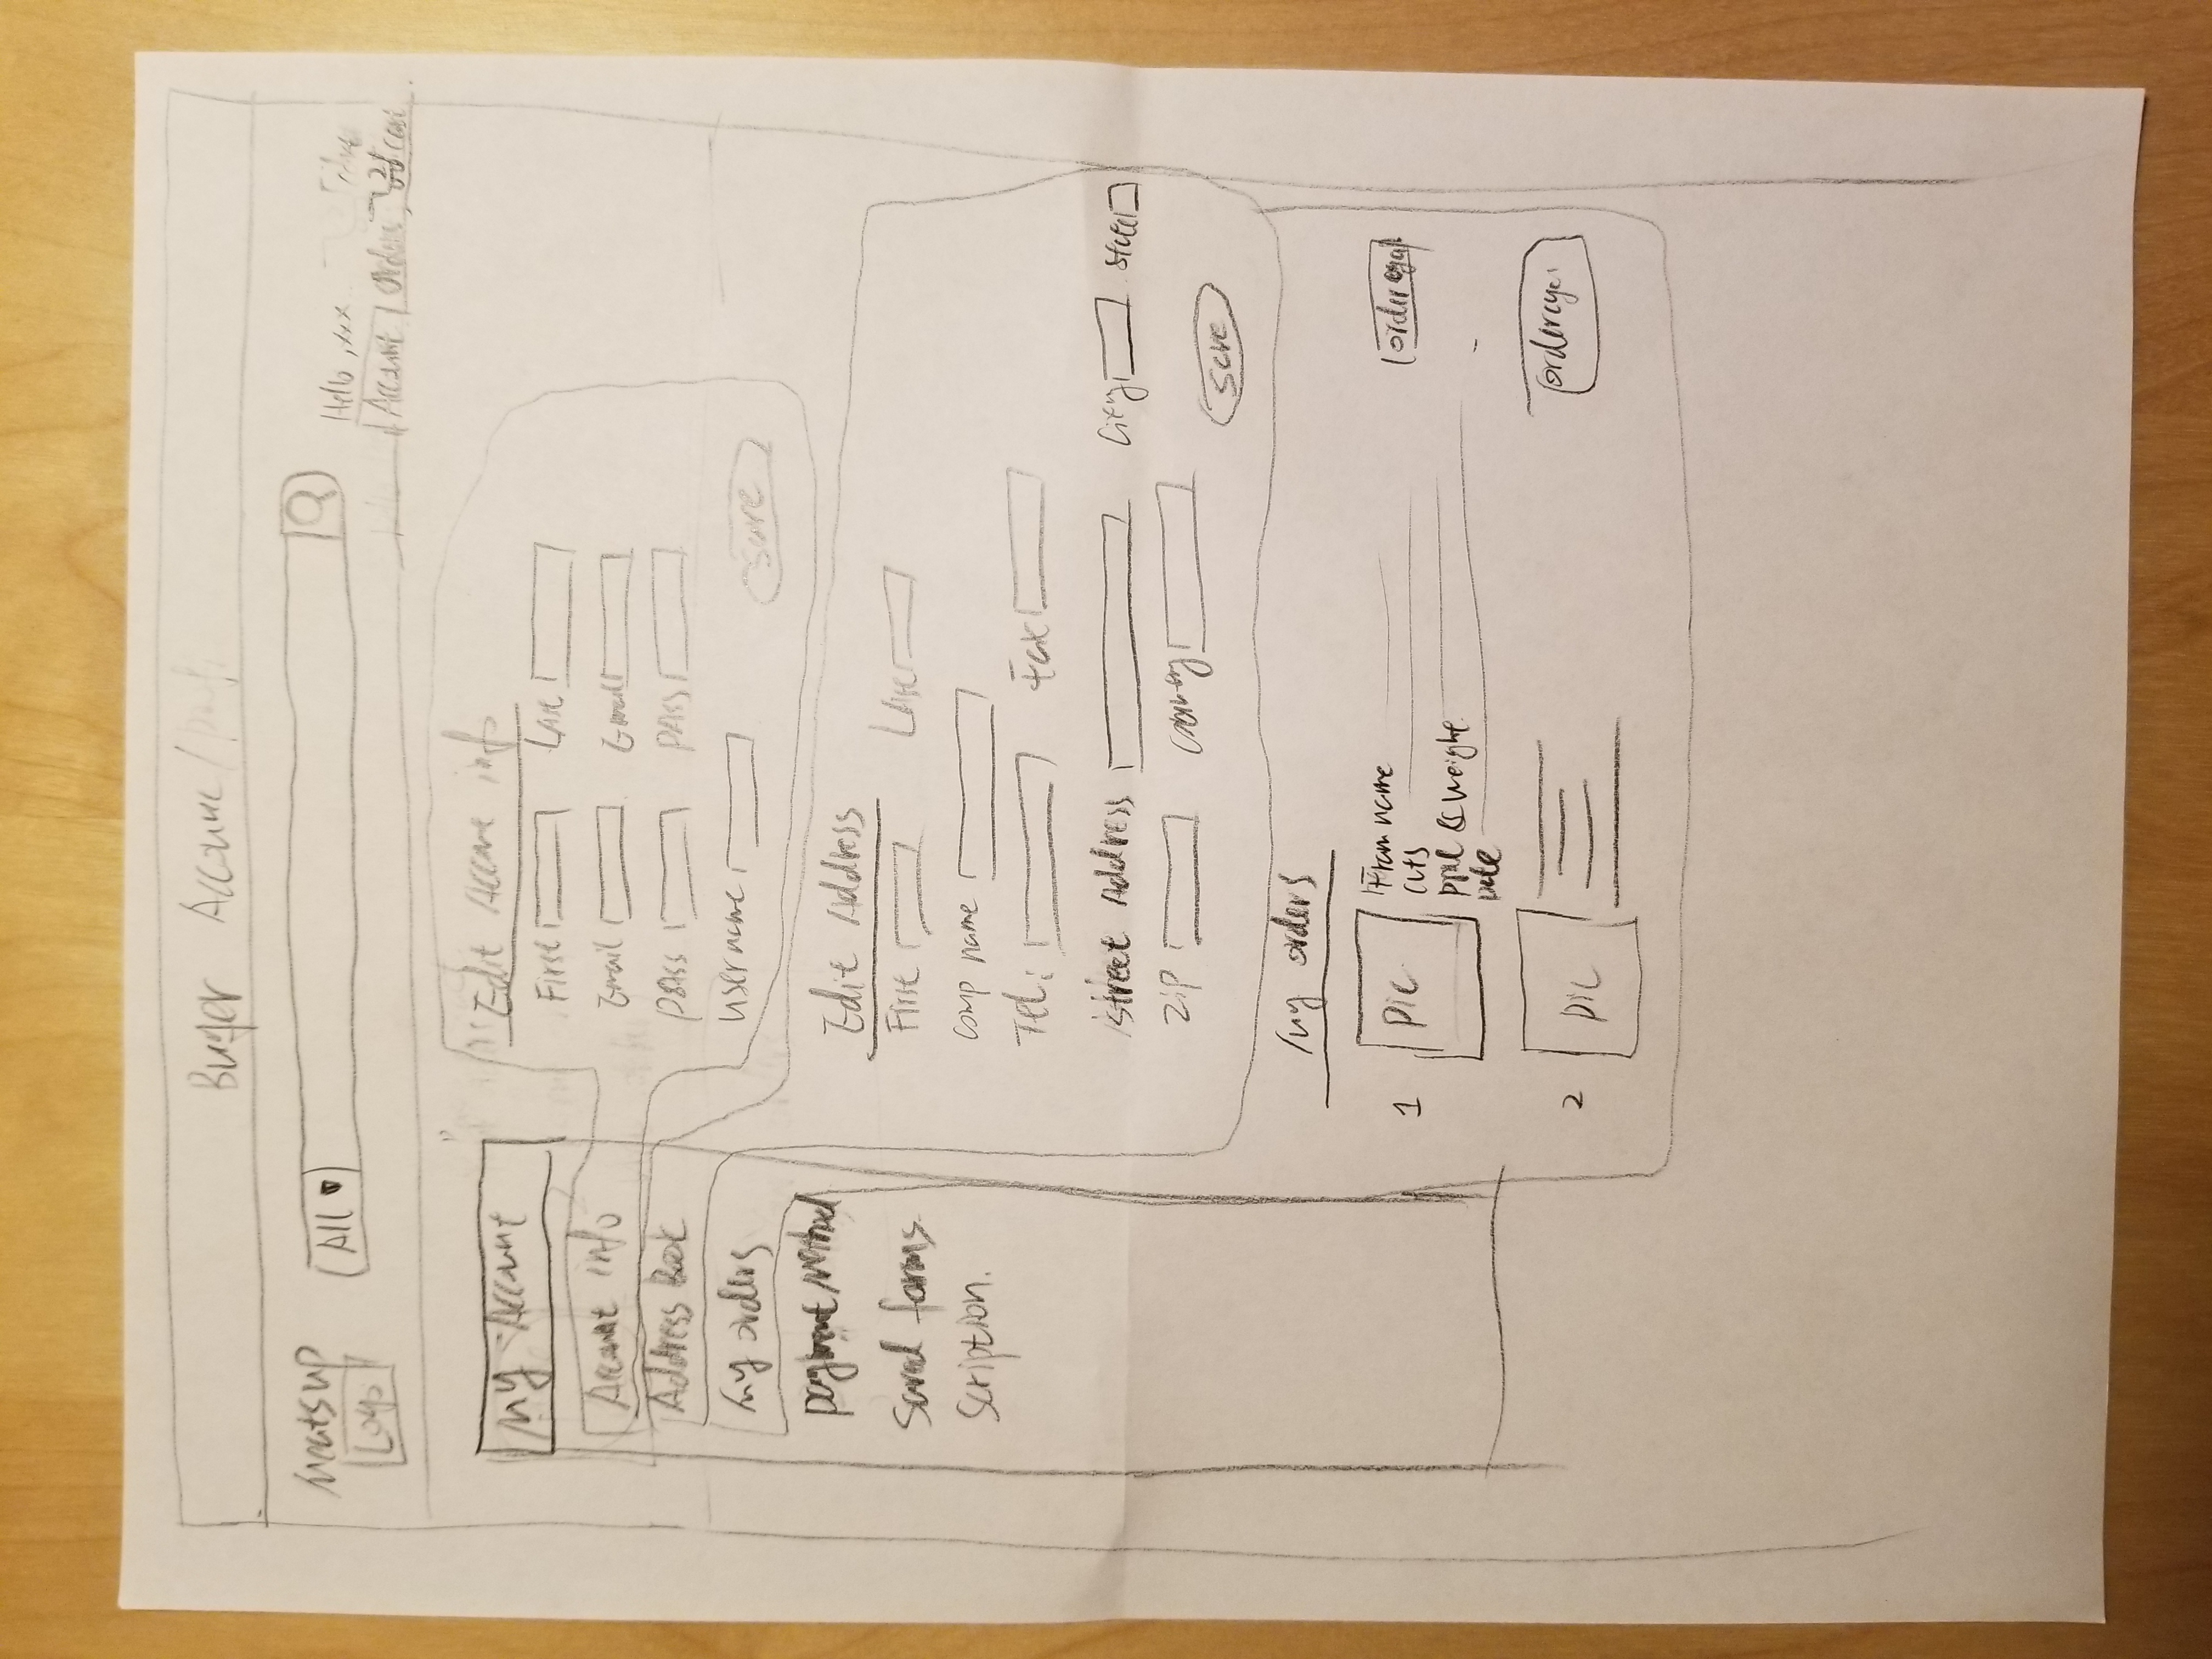 Buyer Account /
Meatsup
Logo
All
Hello, xxx
Account | Orders 21 cart
My Account
Account info
Address Book
My orders
payment Method
Saved forms
Scription.
Edit Account info
First Last
Email Email
pass pass
username
Save
Edit Address
First Last
comp name
Tel: Fax
street Address City State
Zip Country
Save
My orders
1 Pic
Fram name
Cuts
& Weight
Date
order
2 Pic
order